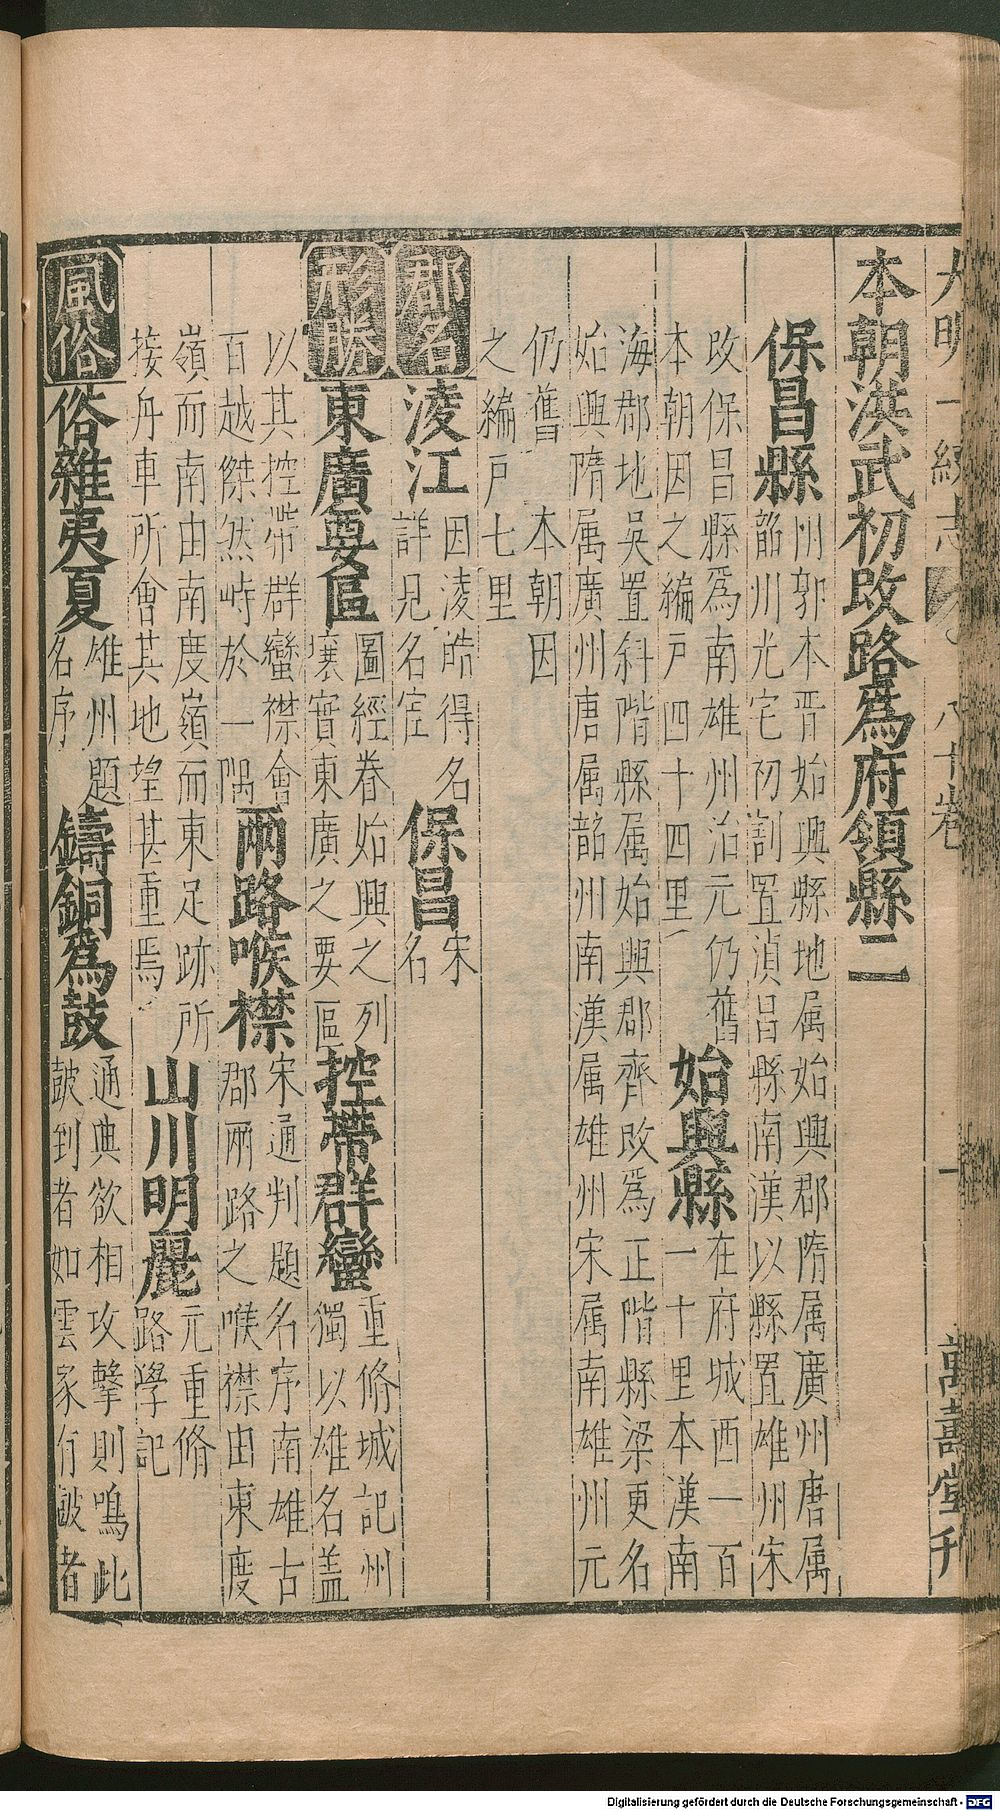 大明一統志 八十卷 一 萬壽堂刋
本朝洪武初改路爲府領縣二
保昌縣 州郭本晉始興縣地属始興郡隋属廣州唐属
韶州光宅初割置湞昌縣南漢以縣置雄州宋
改保昌縣爲南雄州治元仍舊
本朝因之編戸四十四里
始興縣 在府城西一百
一十里本漢南
海郡地吳置斜階縣属始興郡齊改爲正階縣梁更名
始興隋属廣州唐属韶州南漢属雄州宋属南雄州元
仍舊 本朝因
之編戸七里
郡名 淩江 因淩皓得名
詳見名宦
保昌 宋
名
形勝 東廣要區 圖經卷始興之列
壤實東廣之要區
控帶群蠻 重脩城記州
獨以雄名盖
以其控帶群蠻襟會
百越傑然峙於一隅
兩路喉襟 宋通判題名序南雄古
郡兩路之喉襟由東度
嶺而南由南度嶺而東足跡所
接舟車所會其地望其重焉
山川明麗 元重脩
路學記
風俗 俗雜夷夏 雄州題
名序
鑄銅爲鼓 通典欲相攻擊則鳴此
鼓到者如雲家有鼓者
Digitalisierung gefördert durch die Deutsche Forschungsgemeinschaft - DFG